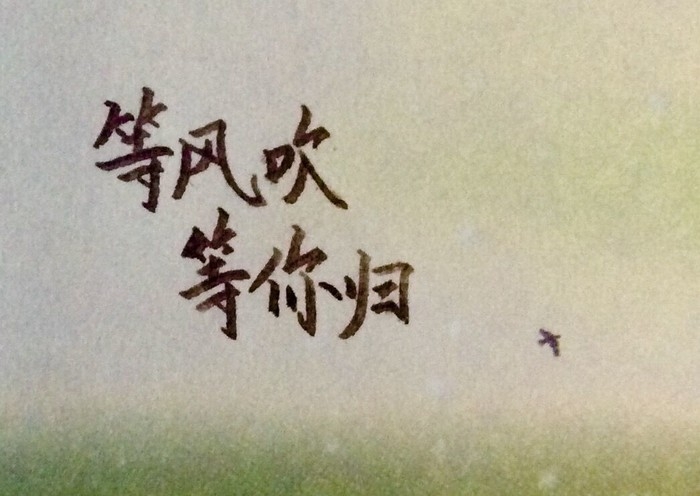 等风吹
等你归